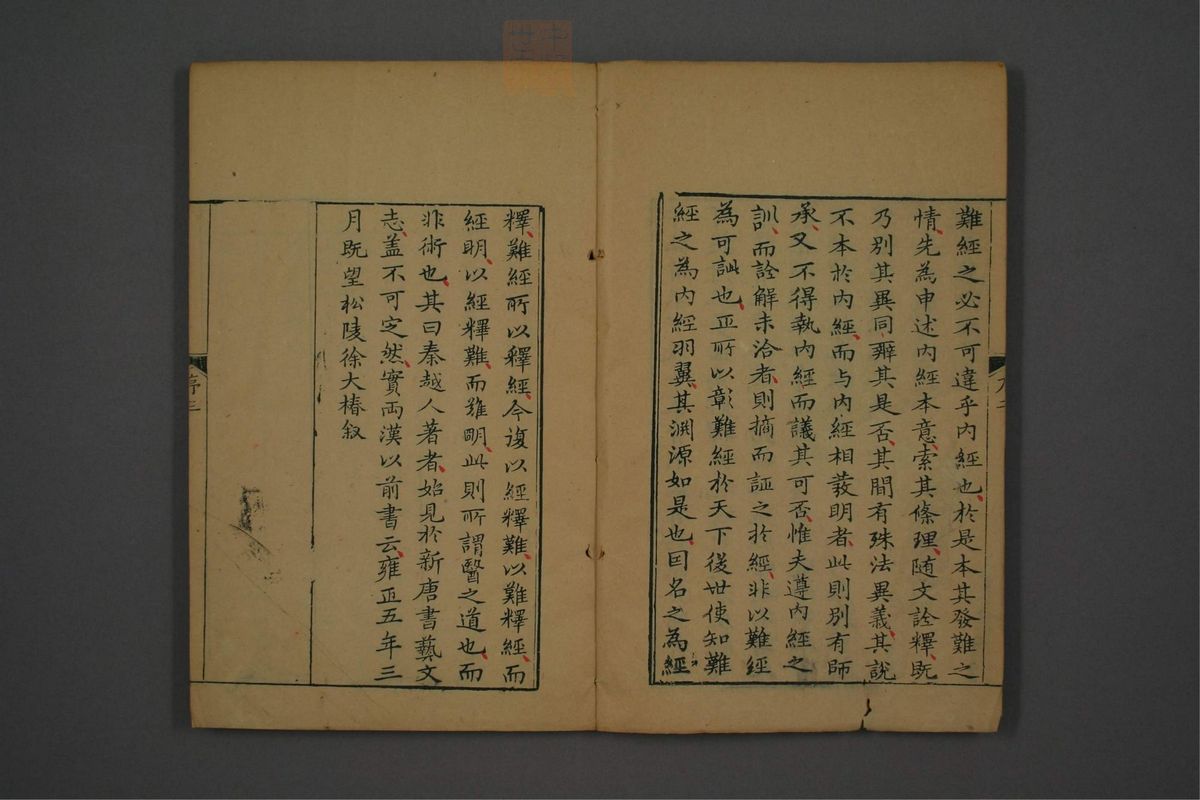 難經之必不可違乎內經也於是本其發難之
情先為申述內經本意索其條理随文詮釋既
乃別其異同辨其是否其間有殊法異義其說
不本於內經而与內經相發明者此則別有師
承又不得執內經而議其可否惟夫遵內經之
訓而詮解未洽者則摘而証之於經非以難經
為可訾也正所以彰難經於天下後世使知難
經之為內經羽翼其淵源如是也因名之為經
釋難經所以釋經今復以經釋難以難釋經而
經明以經釋難而難明此則所謂醫之道也而
非術也其曰秦越人著者始見於新唐書藝文
志盖不可定然實兩漢以前書云雍正五年三
月既望松陵徐大椿叙
序三